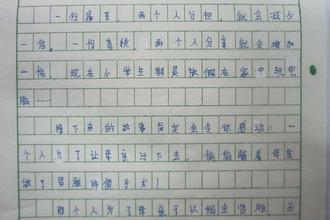 一份痛苦，两个人分担，就会减少
一倍。一份喜悦，两个人分享就会增加
一倍。现在小学生都是放假在家中玩电
脑……
接下来的故事肯定会令你感动：一
个人为了让母亲活下去，偷偷瞒着母亲
做了肾脏移植手术！
那个人为了母亲可以捐出肾脏，而